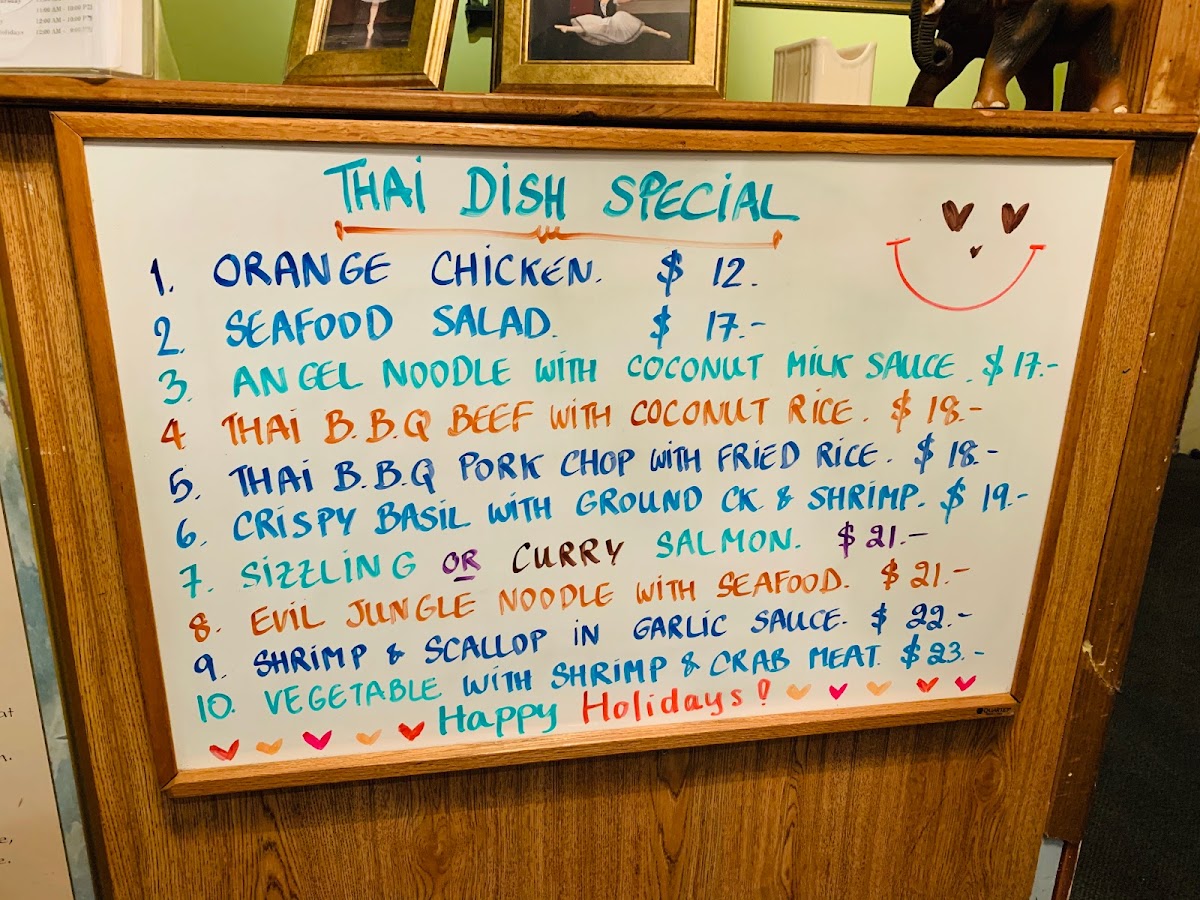 THAI DISH SPECIAL
1. ORANGE CHICKEN. $ 12.
2. SEAFOOD SALAD. $ 17.-
3. ANGEL NOODLE WITH COCONUT MILK SAUCE. $ 17.-
4 THAI B.B.Q BEEF WITH COCONUT RICE. $ 18.-
5. THAI B.B.Q PORK CHOP WITH FRIED RICE. $ 18.-
6. CRISPY BASIL WITH GROUND CK & SHRIMP. $ 19.-
7. SIZZLING OR CURRY SALMON. $ 21.-
8. EVIL JUNGLE NOODLE WITH SEAFOOD. $ 21.-
9. SHRIMP & SCALLOP IN GARLIC SAUCE. $ 22.-
10. VEGETABLE WITH SHRIMP & CRAB MEAT. $ 23.-
Happy Holidays!